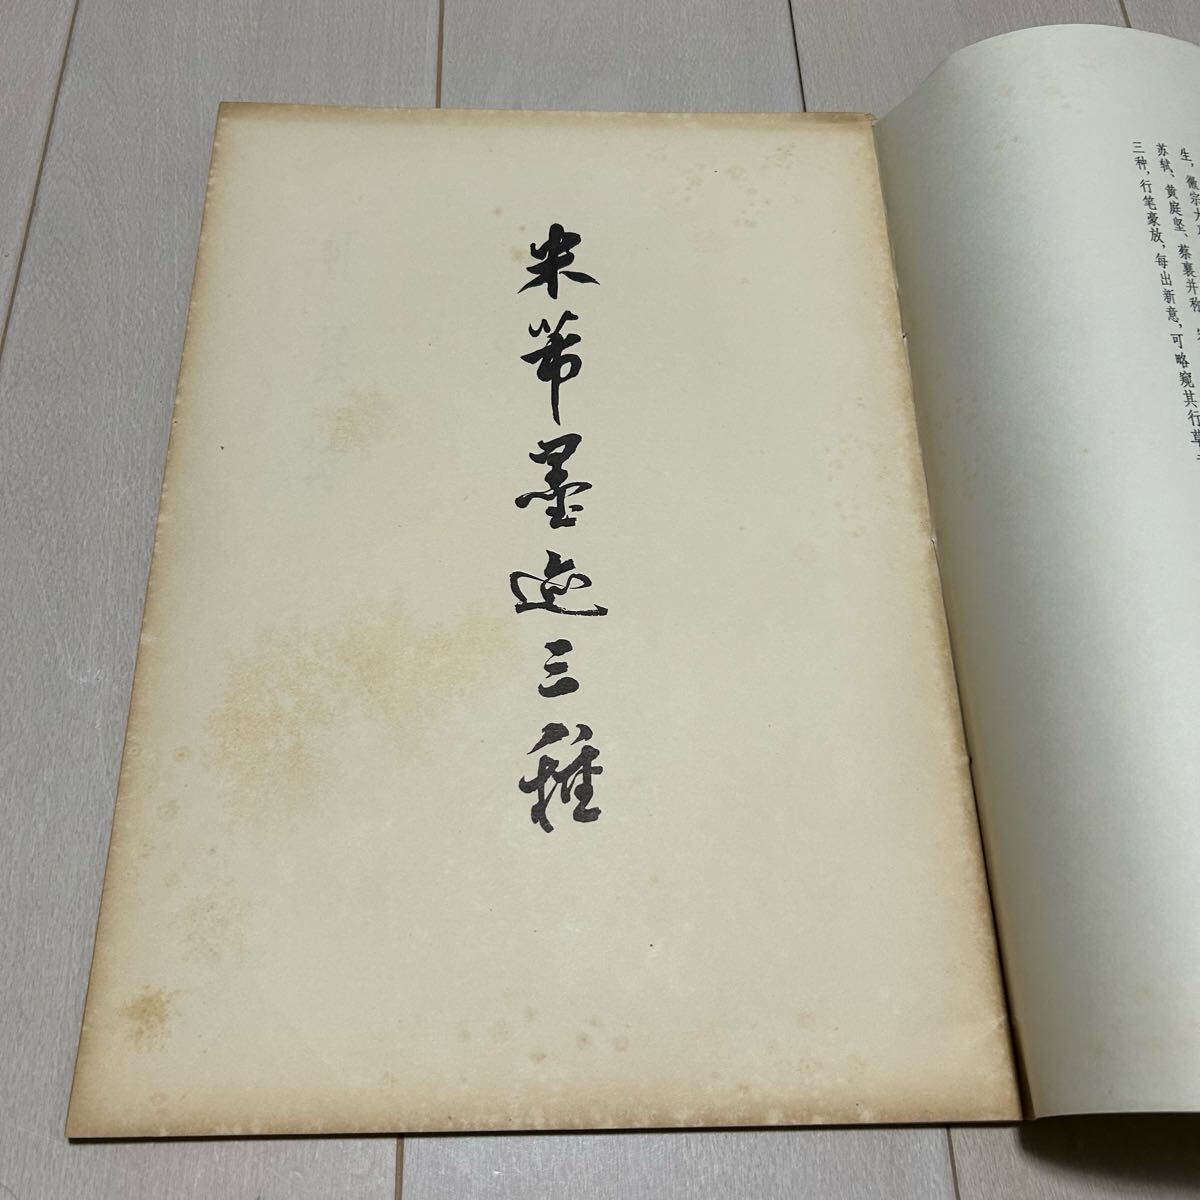 米芾墨迹三種
生，徽宗
苏轼、黄庭坚、蔡襄并称
三种，行笔豪放，每出新意，可略窥其行草